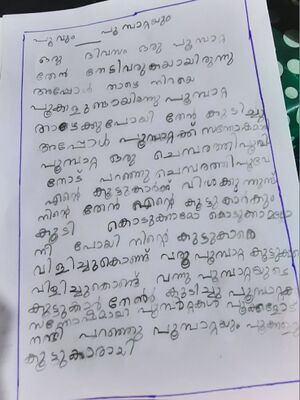 പൂവും പൂമ്പാറ്റയും
ഒരു ദിവസം ഒരു പൂമ്പാറ്റ
തേൻ തേടിവരുകയായിരുന്നു
അപ്പോൾ താഴെ നിറയെ
പൂക്കളുണ്ടായിരുന്നു പൂമ്പാറ്റ
താഴേക്കുപോയി തേൻ കുടിച്ചു
അപ്പോൾ പൂമ്പാറ്റക്ക് സന്തോഷമായി
പൂമ്പാറ്റ ഒരു ചെമ്പരത്തിപൂവി
നോട് പറഞ്ഞു ചെമ്പരത്തിപൂവേ
എന്റെ കൂട്ടുകാർക്ക് വിശക്കുന്നുണ്ട്
നിന്റെ തേൻ എന്റെ കൂട്ടുകാർക്കും
കൂടി കൊടുക്കാമോ കൊടുക്കാമല്ലോ
നീ പോയി നിന്റെ കൂട്ടുകാരെ
വിളിച്ചുകൊണ്ട് വരൂ പൂമ്പാറ്റ കൂട്ടുകാരെ
വിളിച്ചുകൊണ്ട് വന്നു പൂമ്പാറ്റയുടെ
കൂട്ടുകാർ തേൻ കുടിച്ചു പൂമ്പാറ്റക്ക്
സന്തോഷമായി പൂമ്പാറ്റകൾ പൂക്കളോട്
നന്ദി പറഞ്ഞു പൂമ്പാറ്റയും പൂക്കളും
കൂട്ടുകാരായി